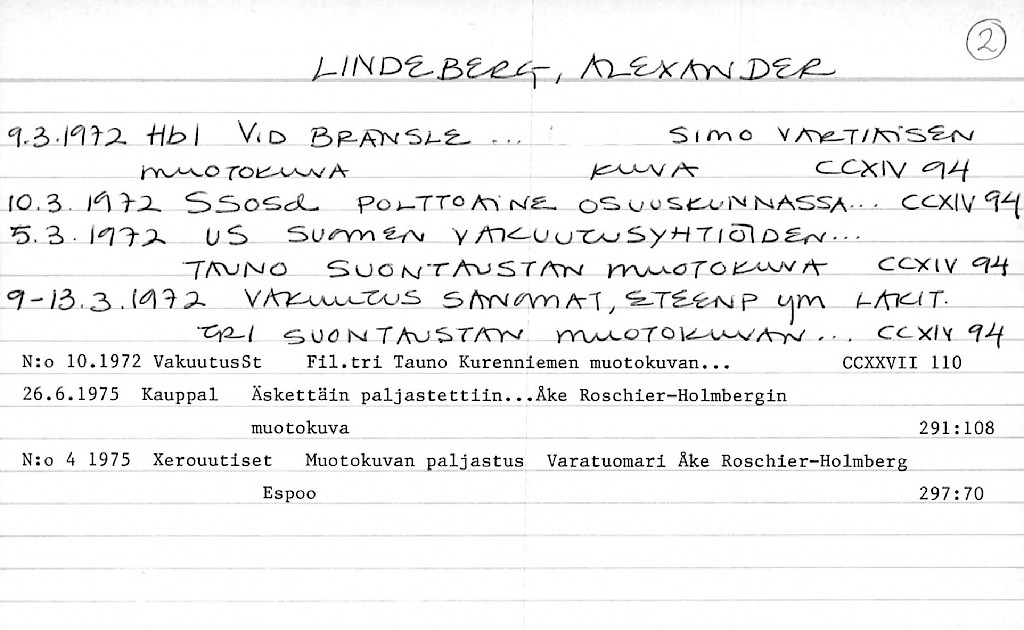 2
LINDEBERG, ALEXANDER
9.3.1972 Hbl VID BRÄNSLE ... SIMO VARTIAISEN
MUOTOKUVA KUVA CCXIV 94
10.3.1972 SSosd POLTTOAINE OSUUSKUNNASSA... CCXIV 94
5.3.1972 US SUOMEN VAKUUTUSYHTIÖIDEN...
TAUNO SUONTAUSTAN MUOTOKUVA CCXIV 94
9-13.3.1972 VAKUUTUS SANOMAT, ETEENP ym LAKIT.
TRI SUONTAUSTAN MUOTOKUVAN... CCXIV 94
N:o 10.1972 VakuutusSt Fil.tri Tauno Kurenniemen muotokuvan... CCXXVII 110
26.6.1975 Kauppal Äskettäin paljastettiin...Åke Roschier-Holmbergin
muotokuva 291:108
N:o 4 1975 Xerouutiset Muotokuvan paljastus Varatuomari Åke Roschier-Holmberg
Espoo 297:70